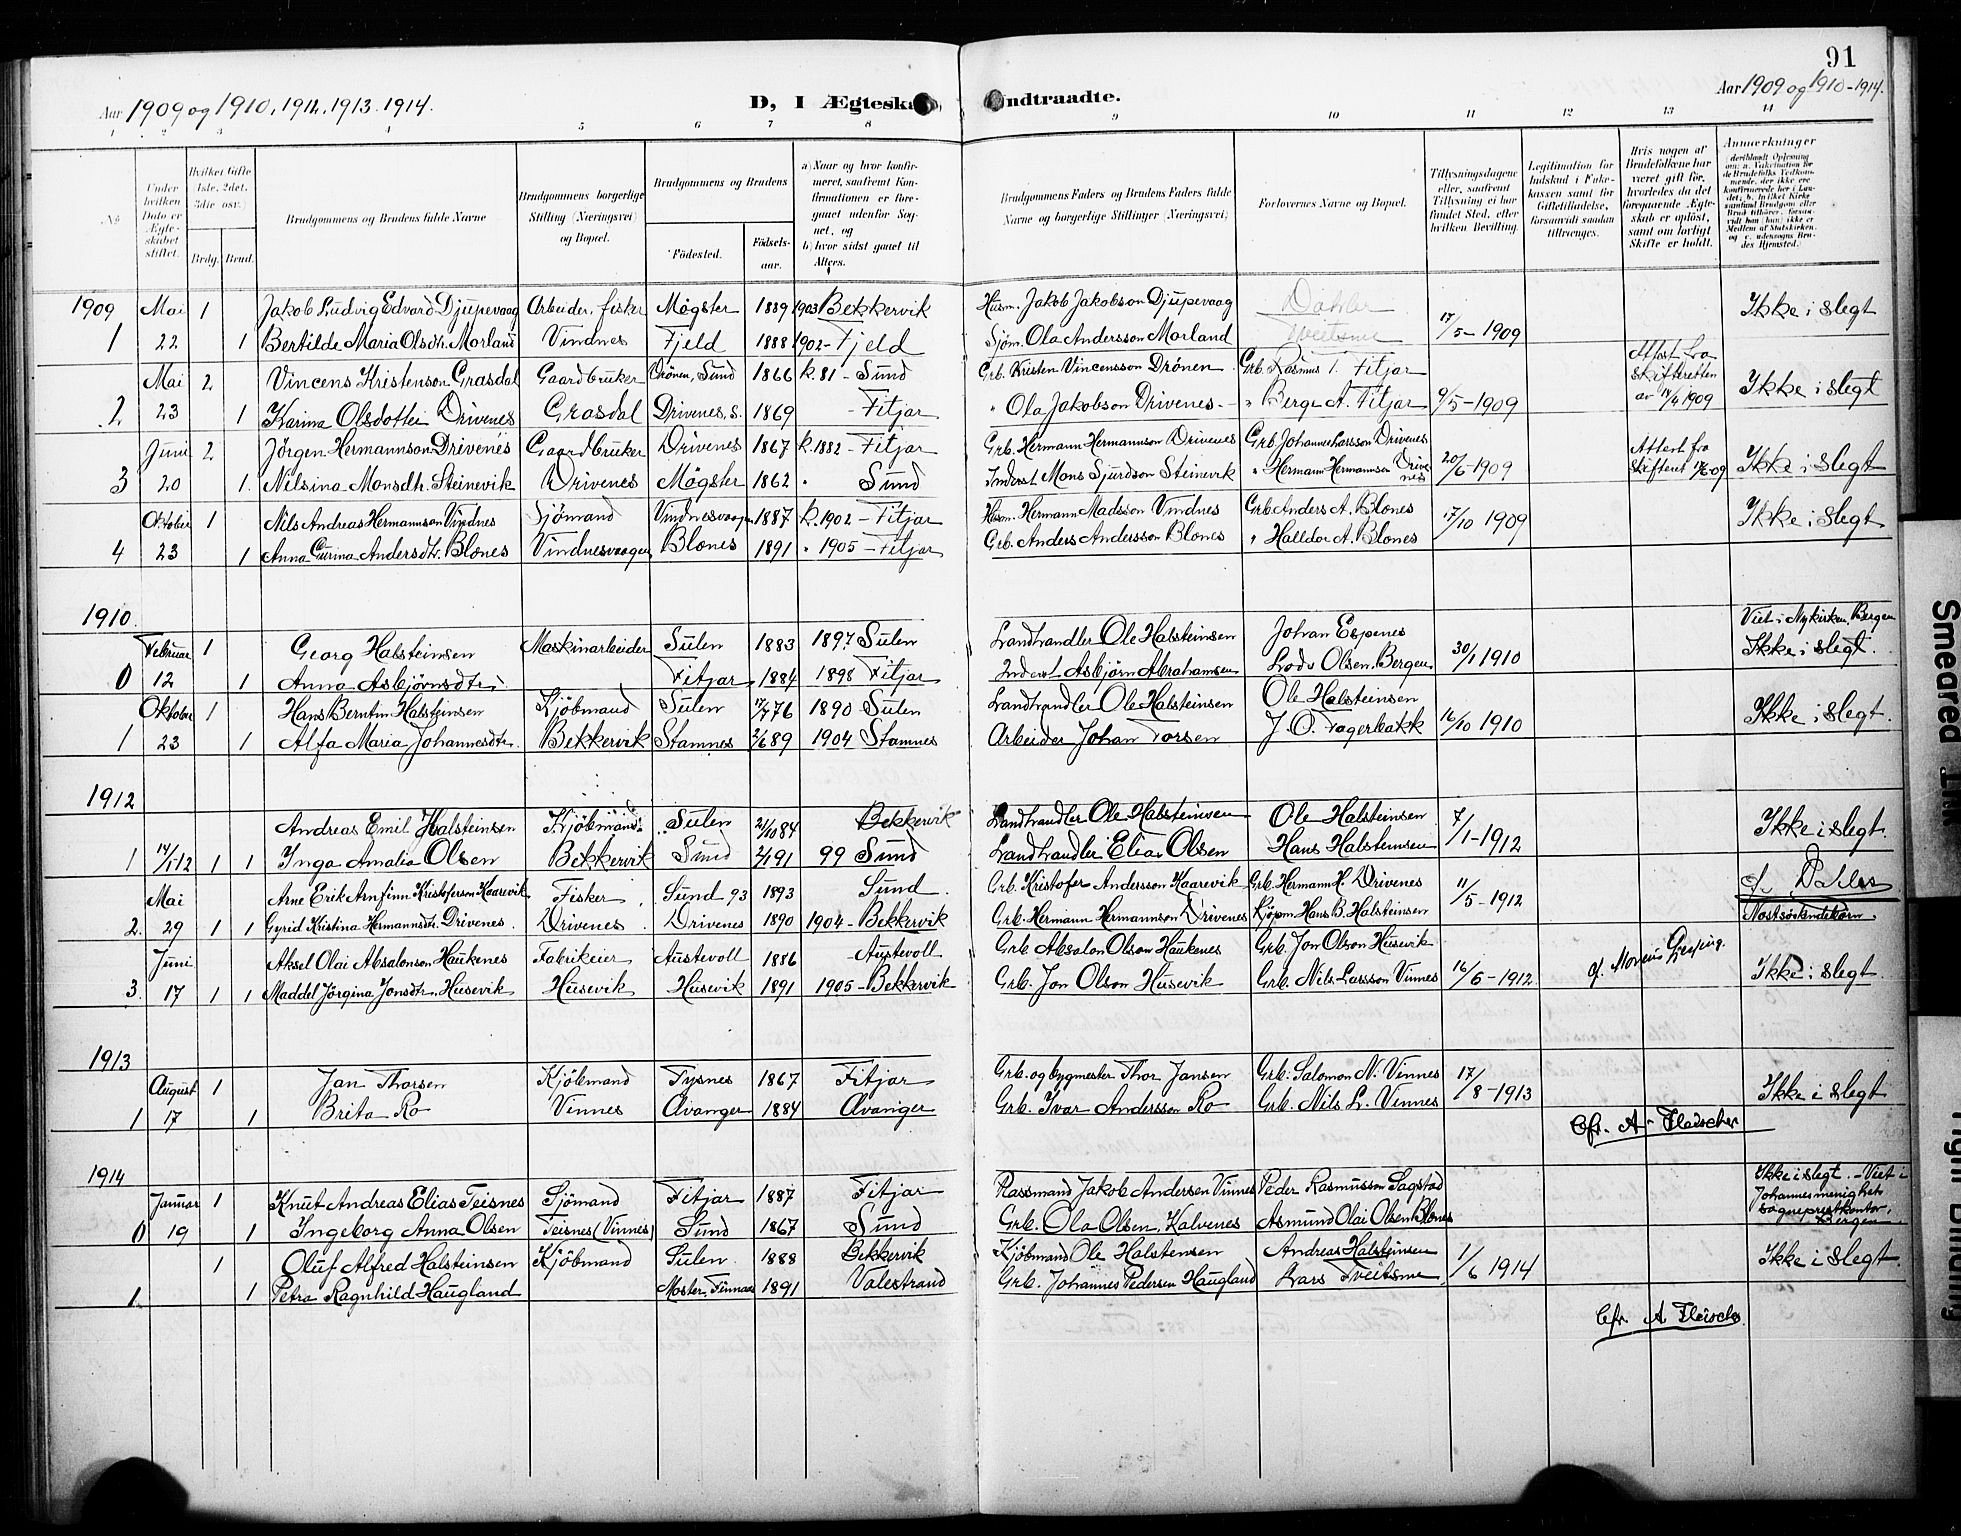 91
Aar 1909 og 1910, 1912, 1913. 1914. D, I Ægteska ndtraadte. Aar 1909 og 1910-1914.
1 2 3 4 5 6 7 8 9 10 11 12 13 14
No
Under hvilken Dato er Ægteskabet stiftet.
Hvilket Gifte 1ste, 2det, 3die osv.)
Brdg. Brud.
Brudgommens og Brudens fulde Navne
Brudgommens borgerlige Stilling (Næringsvei) og Bopæl.
Brudgommens og Brudens
Fødested. Fødselsaar.
a) Naar og hvor konfirmeret, saafremt Konfirmationen er foregaaet udenfor Sognet, og
b) hvor sidst gaaet til Alters.
Brudgommens Faders og Brudens Faders fulde Navne og borgerlige Stillinger (Næringsvei)
Forlovernes Navne og Bopæl.
Tillysningsdagene eller, saafremt Tillysning ei har fundet Sted, efter hvilken Bevilling.
Legitimation for Indskud i Enkekassen samt for Giftetilladelse, forsaavidt saadan tiltrænges.
Hvis nogen af Brudefolkene har været gift før, hvorledes da det foregaaende Ægteskab er opløst, samt om lovligt Skifte er holdt.
Anmærkninger
1909 Mai 1 Jakob Ludvig Edvard Djupevaag Arbeider, fisker Møgster 1889 1903 Bekkervik Husm. Jakob Jakobson Djupevaag Ikke i slegt
1 22 1 Bertilde Maria Olsdtr. Morland Vindnes Fjeld 1888 1902- Fjeld Sjøm. Ola Andersson Morland 17/5-1909
Mai 2 Vincens Kristenson Grasdal Gaardbruker Drönen, Sund 1866 k. 81 - Sund Grb. Kristen Vincensson Drönen Grb. Rasmus T. Fitjar Attest fra skifteretten av 14/4 1909 Ikke i slegt
2 23 1 Karina Olsdotter Drivenes Grasdal Drivenes, S. 1869 - Fitjar " Ola Jakobson Drivenes - " Berge A. Fitjar 9/5-1909
Juni 2 Jörgen Hermannson Drivenes Gaardbruker Drivenes 1867 k. 1882 - Fitjar Grb. Hermann Hermannson Drivenes Grb. Johannes Larsson Drivenes Attest fra
3 20 1. Nilsina Monsdtr. Steinevik Drivenes Møgster 1862 " Sund Inderst Mons Sjurdson Steinevik " Hermann Hermannson Drivenes 20/6-1909 Ikke i slegt
Oktober 1 Nils Andreas Hermannson Vindnes Sjömand Vindnesvaagen 1887 k. 1902 - Fitjar Husm. Hermann Madsson Vindnes Grb Anders A. Blones Ikke i slegt
4 23 1 Anna Gurina Andersdtr. Blones Vindnesvaagen Blones 1891 " 1905 - Fitjar Grb. Anders Andersson Blones " Halldor A. Blones 17/10 1909
1910.
Februar 1 Georg Halsteinsen Maskinarbeider Sulen 1883 1897. Sulen Landhandler Ole Halsteinsen Johan Espenes Viet i Nykirken, Bergen
0 12 1 Anna Asbjörnsdtr. Fitjar 1884 1898 Fitjar Inderst Asbjörn Abrahamsen Lodv Olsen. Bergen 30/1 1910 Ikke i slegt.
Oktober 1 Hans Berntin Halsteinsen Kjöbmand Sulen 17/7 76 1890 Sulen Landhandler Ole Halsteinsen Ole Halsteinsen
1 23 1 Alfa Maria Johannesdtr. Bekkervik Stamnes 2/6 89 1904 Stamnes Arbeider Johan Torsen J. O. Fagerbakk 16/10 1910 Ikke i slegt.
1912
Andreas Emil Halsteinsen Kjöbmand Sulen 21/10 84 Bekkervik Landhandler Ole Halsteinsen Ole Halsteinsen 7/1-1912 Ikke i slegt.
1 14/1-12 1 1 Inga Amalia Olsen Bekkervik Sund 2/1 91 99 Sund Landhandler Elias Olsen Hans Halsteinsen
Mai Arne Erik Arnfinn Kristoferson Kaarevik Fisker Sund 93 1893 Sund. Grb. Kristofer Andersson Kaarevik Grb. Hermann H. Drivenes 11/5-1912
2. 29 1 1 Gyrid Kristina Hermannsdtr. Drivenes. Drivenes. Drivenes 1890 1904 - Bekkervik Grb. Hermann Hermannson Drivenes Kjøpm. Hans B. Halsteinsen Næstsøskendebørn.
Juni Aksel Olai Absalonson Haukenes Fabrikeier Austevoll 1886 - Austevoll Grb Absalon Olson Haukenes Grb. Jon Olson Husevik
3. 17 1 1 Maddel Jörgina Jonsdtr. Husevik Husevik Husevik 1891 1905 - Bekkervik Grb. Jon Olson Husevik Grb. Nils Larsson Vinnes 16/6-1912 Ikke i slegt
1913
August 1 Jan Thorsen Kjöbmand Tysnes 1867 Fitjar Grb. og bygmester Thor Jansen Grb. Salomon N. Vinnes 17/8-1913 Ikke i slegt
1 17 1 Brita Ro Vinnes Ævanger 1884 Ævanger Grb. Ivar Andersson Ro Grb. Nils L. Vinnes
Cfr. A. Fleischer
1914
Januar 1 Knut Andreas Elias Teisnes Sjömand Fitjar 1887 Fitjar Rassmand Jakob Andersen Vinnes Peder Rasmusson Sagstad Ikke i slegt. - Viet i Johannesmenighets sogneprestkontor, Bergen.
0 19 1 Ingeborg Anna Olsen Teisnes (Vinnes) Sund 1867 Sund Grb. Ola Olsen, Kalvenes Asmund Olai Olsen Blones
1 Oluf Alfred Halsteinsen Kjöbmand Sulen 1888 Bekkervik Kjöbmand Ole Halstensen Andreas Halsteinsen 1/6 1914 Ikke i slegt.
1. 1 Petra Ragnhild Haugland Moster, Finnaas 1891 Valestrand Grb. Johannes Pedersen Haugland Lars Tveitsme
Cfr. A Fleischer
Smeared Ink
Tight Binding